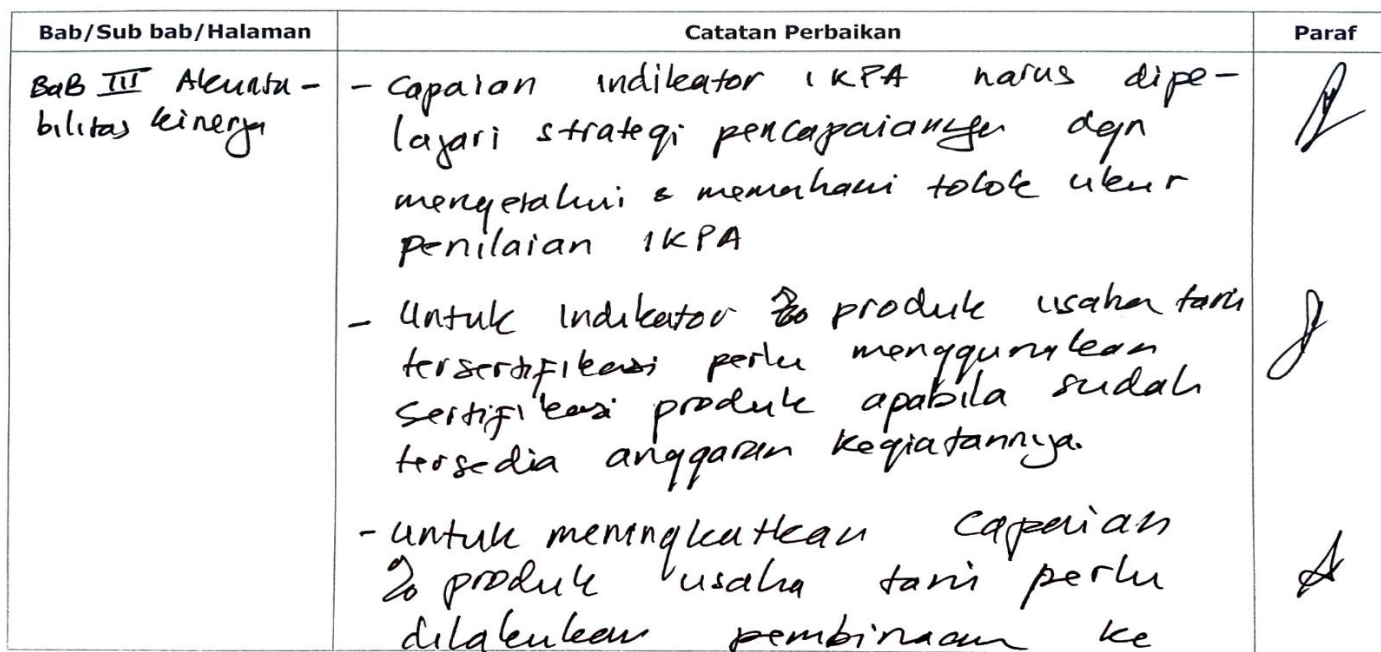 Bab/Sub bab/Halaman Catatan Perbaikan Paraf
BaB III Akunta-
bilitas kinerja
- Capaian indikator IKPA harus dipe-
lajari strategi pencapaiannya dgn
mengetahui & memahami tolok ukur
penilaian IKPA
- Untuk Indikator % produk usaha tani
tersertifikasi perlu menggunakan
Sertifikasi produk apabila sudah
tersedia anggaran kegiatannya.
- Untuk meningkatkan capaian
% produk usaha tani perlu
dilakukan pembinaan ke